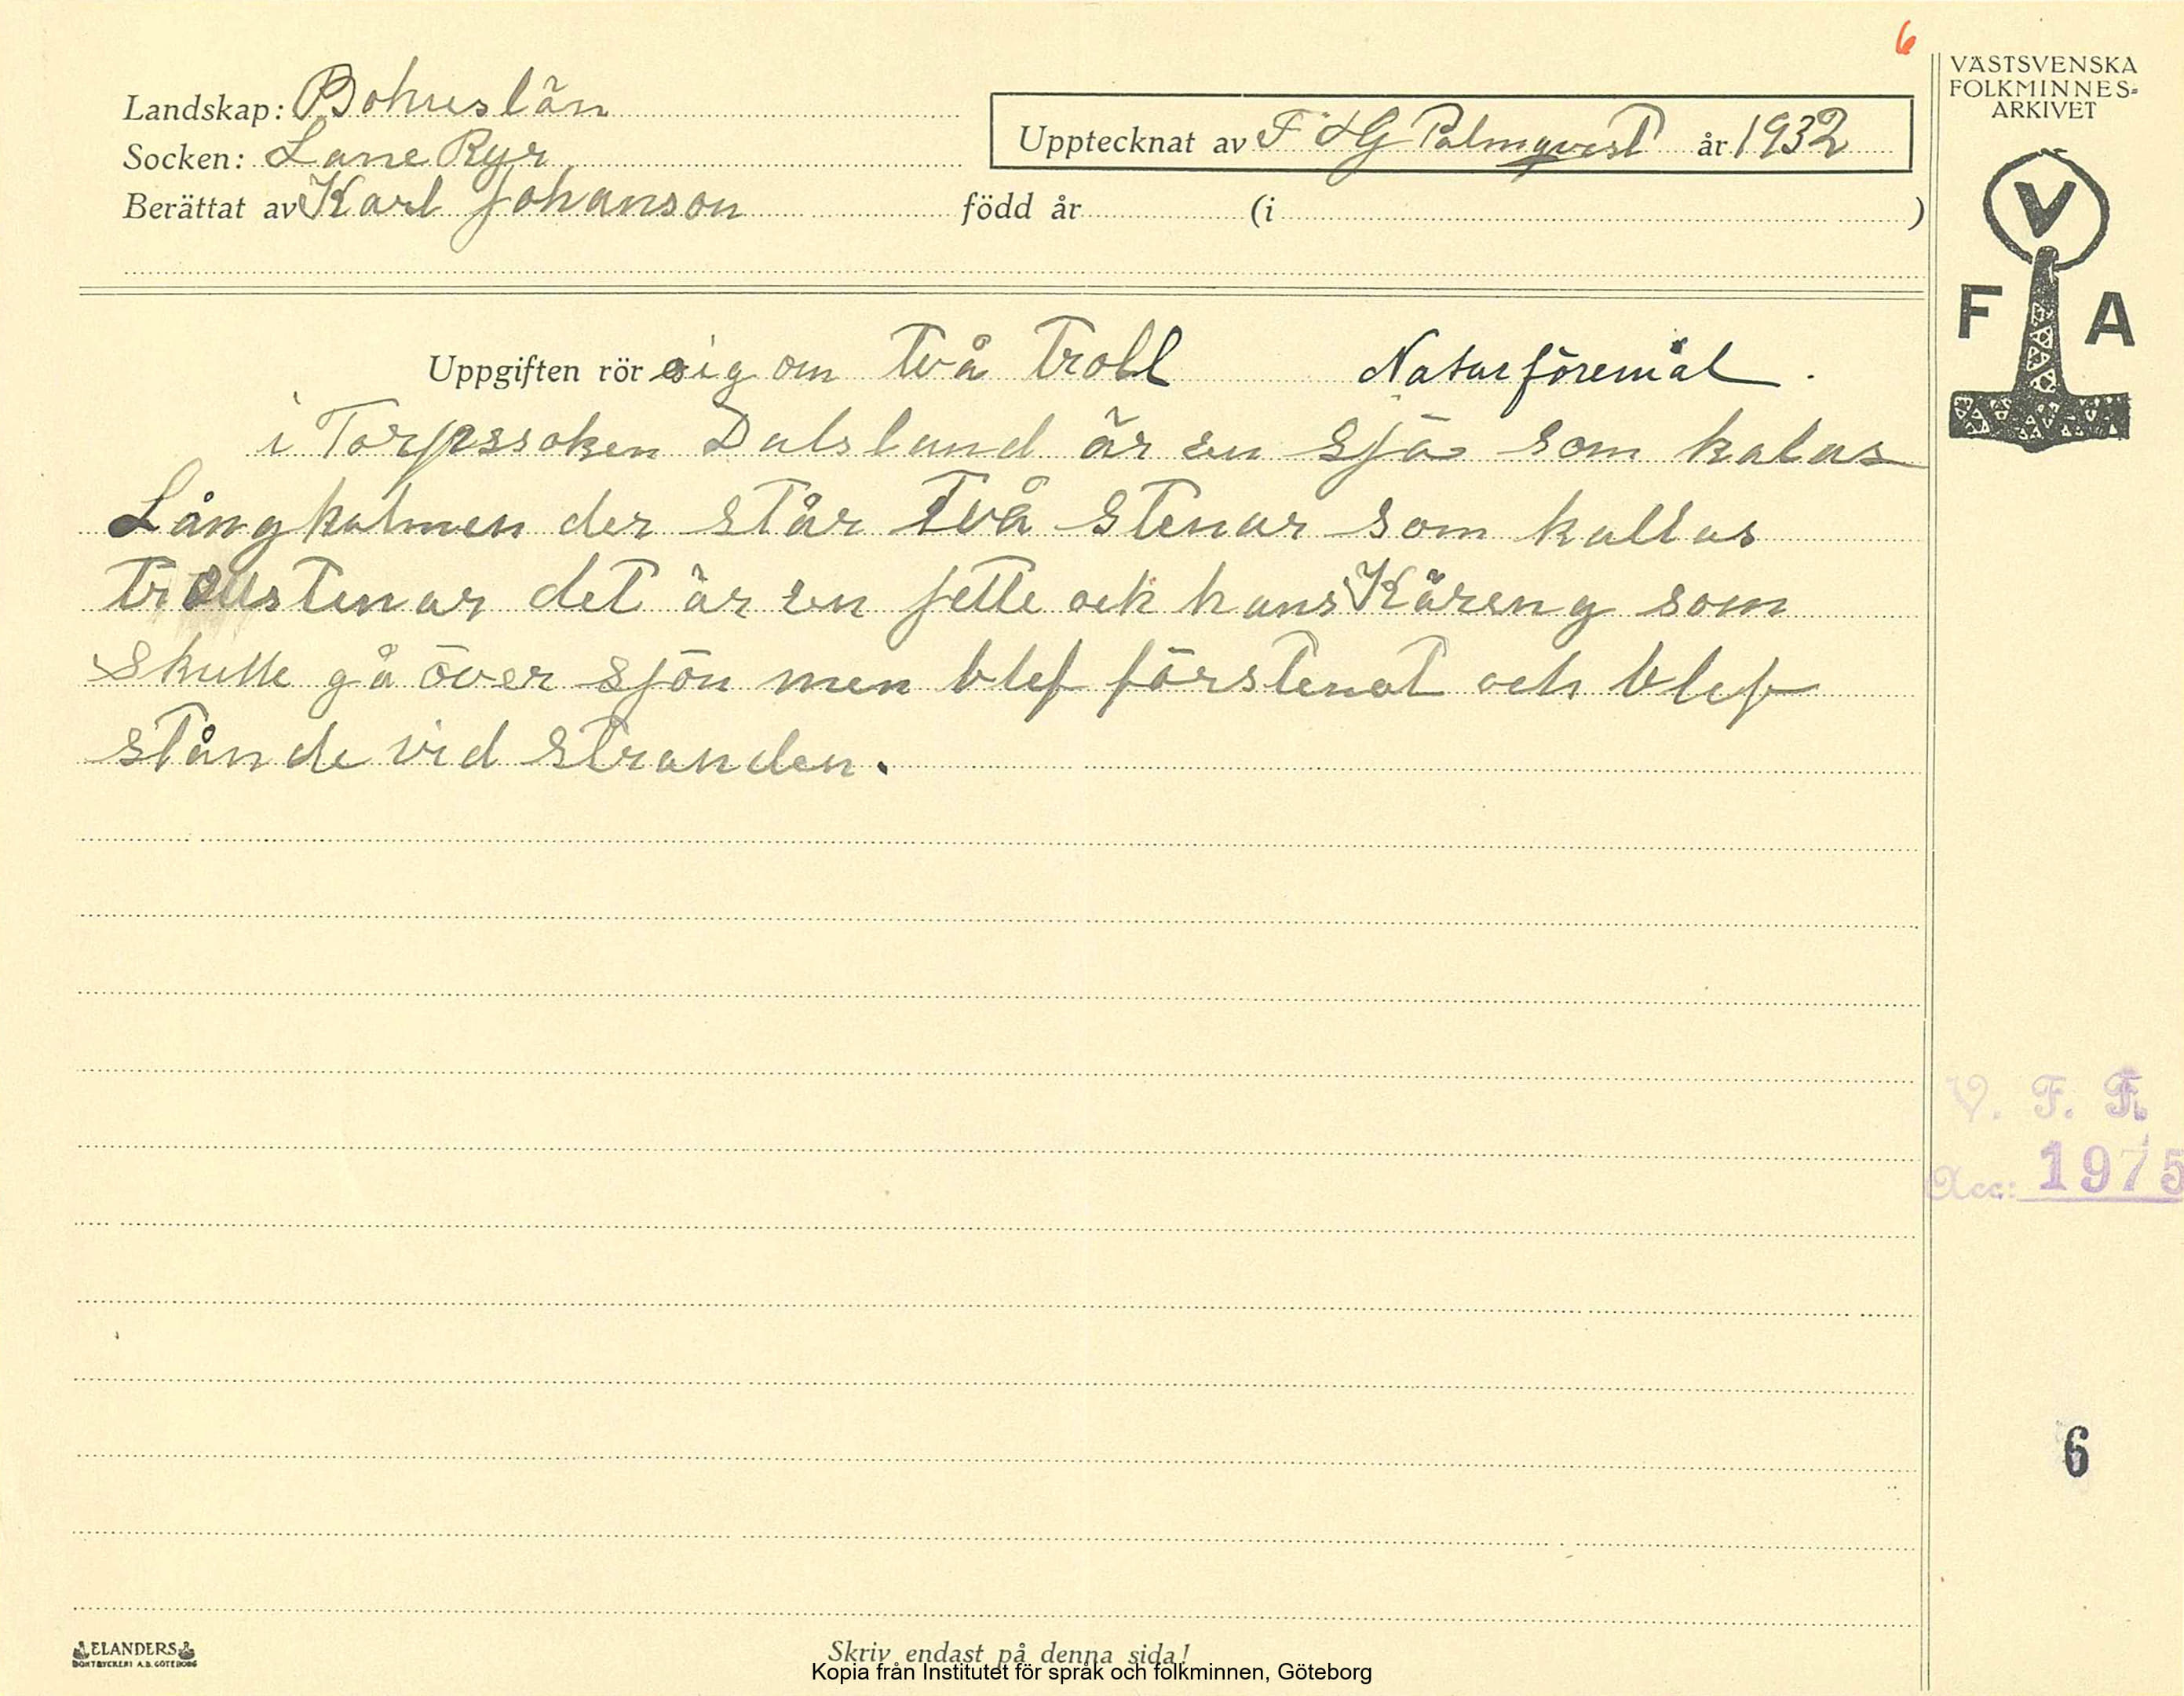 6
VÄSTSVENSKA
FOLKMINNES-
ARKIVET
Landskap: Bohuslän
Upptecknat av F & G Palmqvist år 1932
Socken: Lane Ryr
Berättat av Karl Johanson född år (i )
V
F A
Uppgiften rör sig om två troll Naturföremål.
i Torpssoken Dalsland är en sjö som kalas
Långhalmen der står två stenar som kallas
trollstenar det är en jette och hans Käreng som
skulle gå över sjön men blef förstenat och blef
stånde vid stranden.
V. F. F.
Acc: 1975
6
ELANDERS
BOKTRYCKERI A.B. GÖTEBORG
Skriv endast på denna sida!
Kopia från Institutet för språk och folkminnen, Göteborg